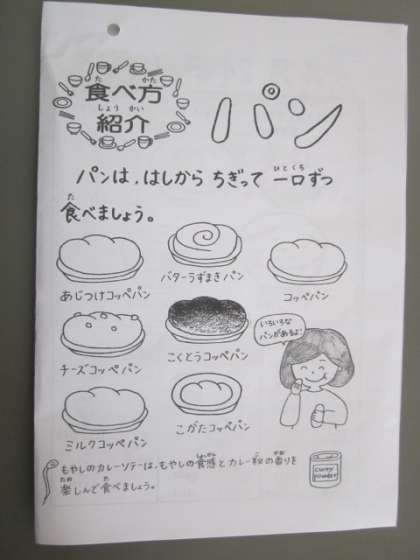 食べ方
紹介
パン
パンは、はしから ちぎって 一口ずつ
食べましょう。
あじつけコッペパン
バターうずまきパン
コッペパン
チーズコッペパン
こくとうコッペパン
いろいろな
パンがあるよ!
ミルクコッペパン
こがたコッペパン
もやしのカレーソテーは、もやしの食感とカレー粉の香りを
楽しんで食べましょう。
curry
powder